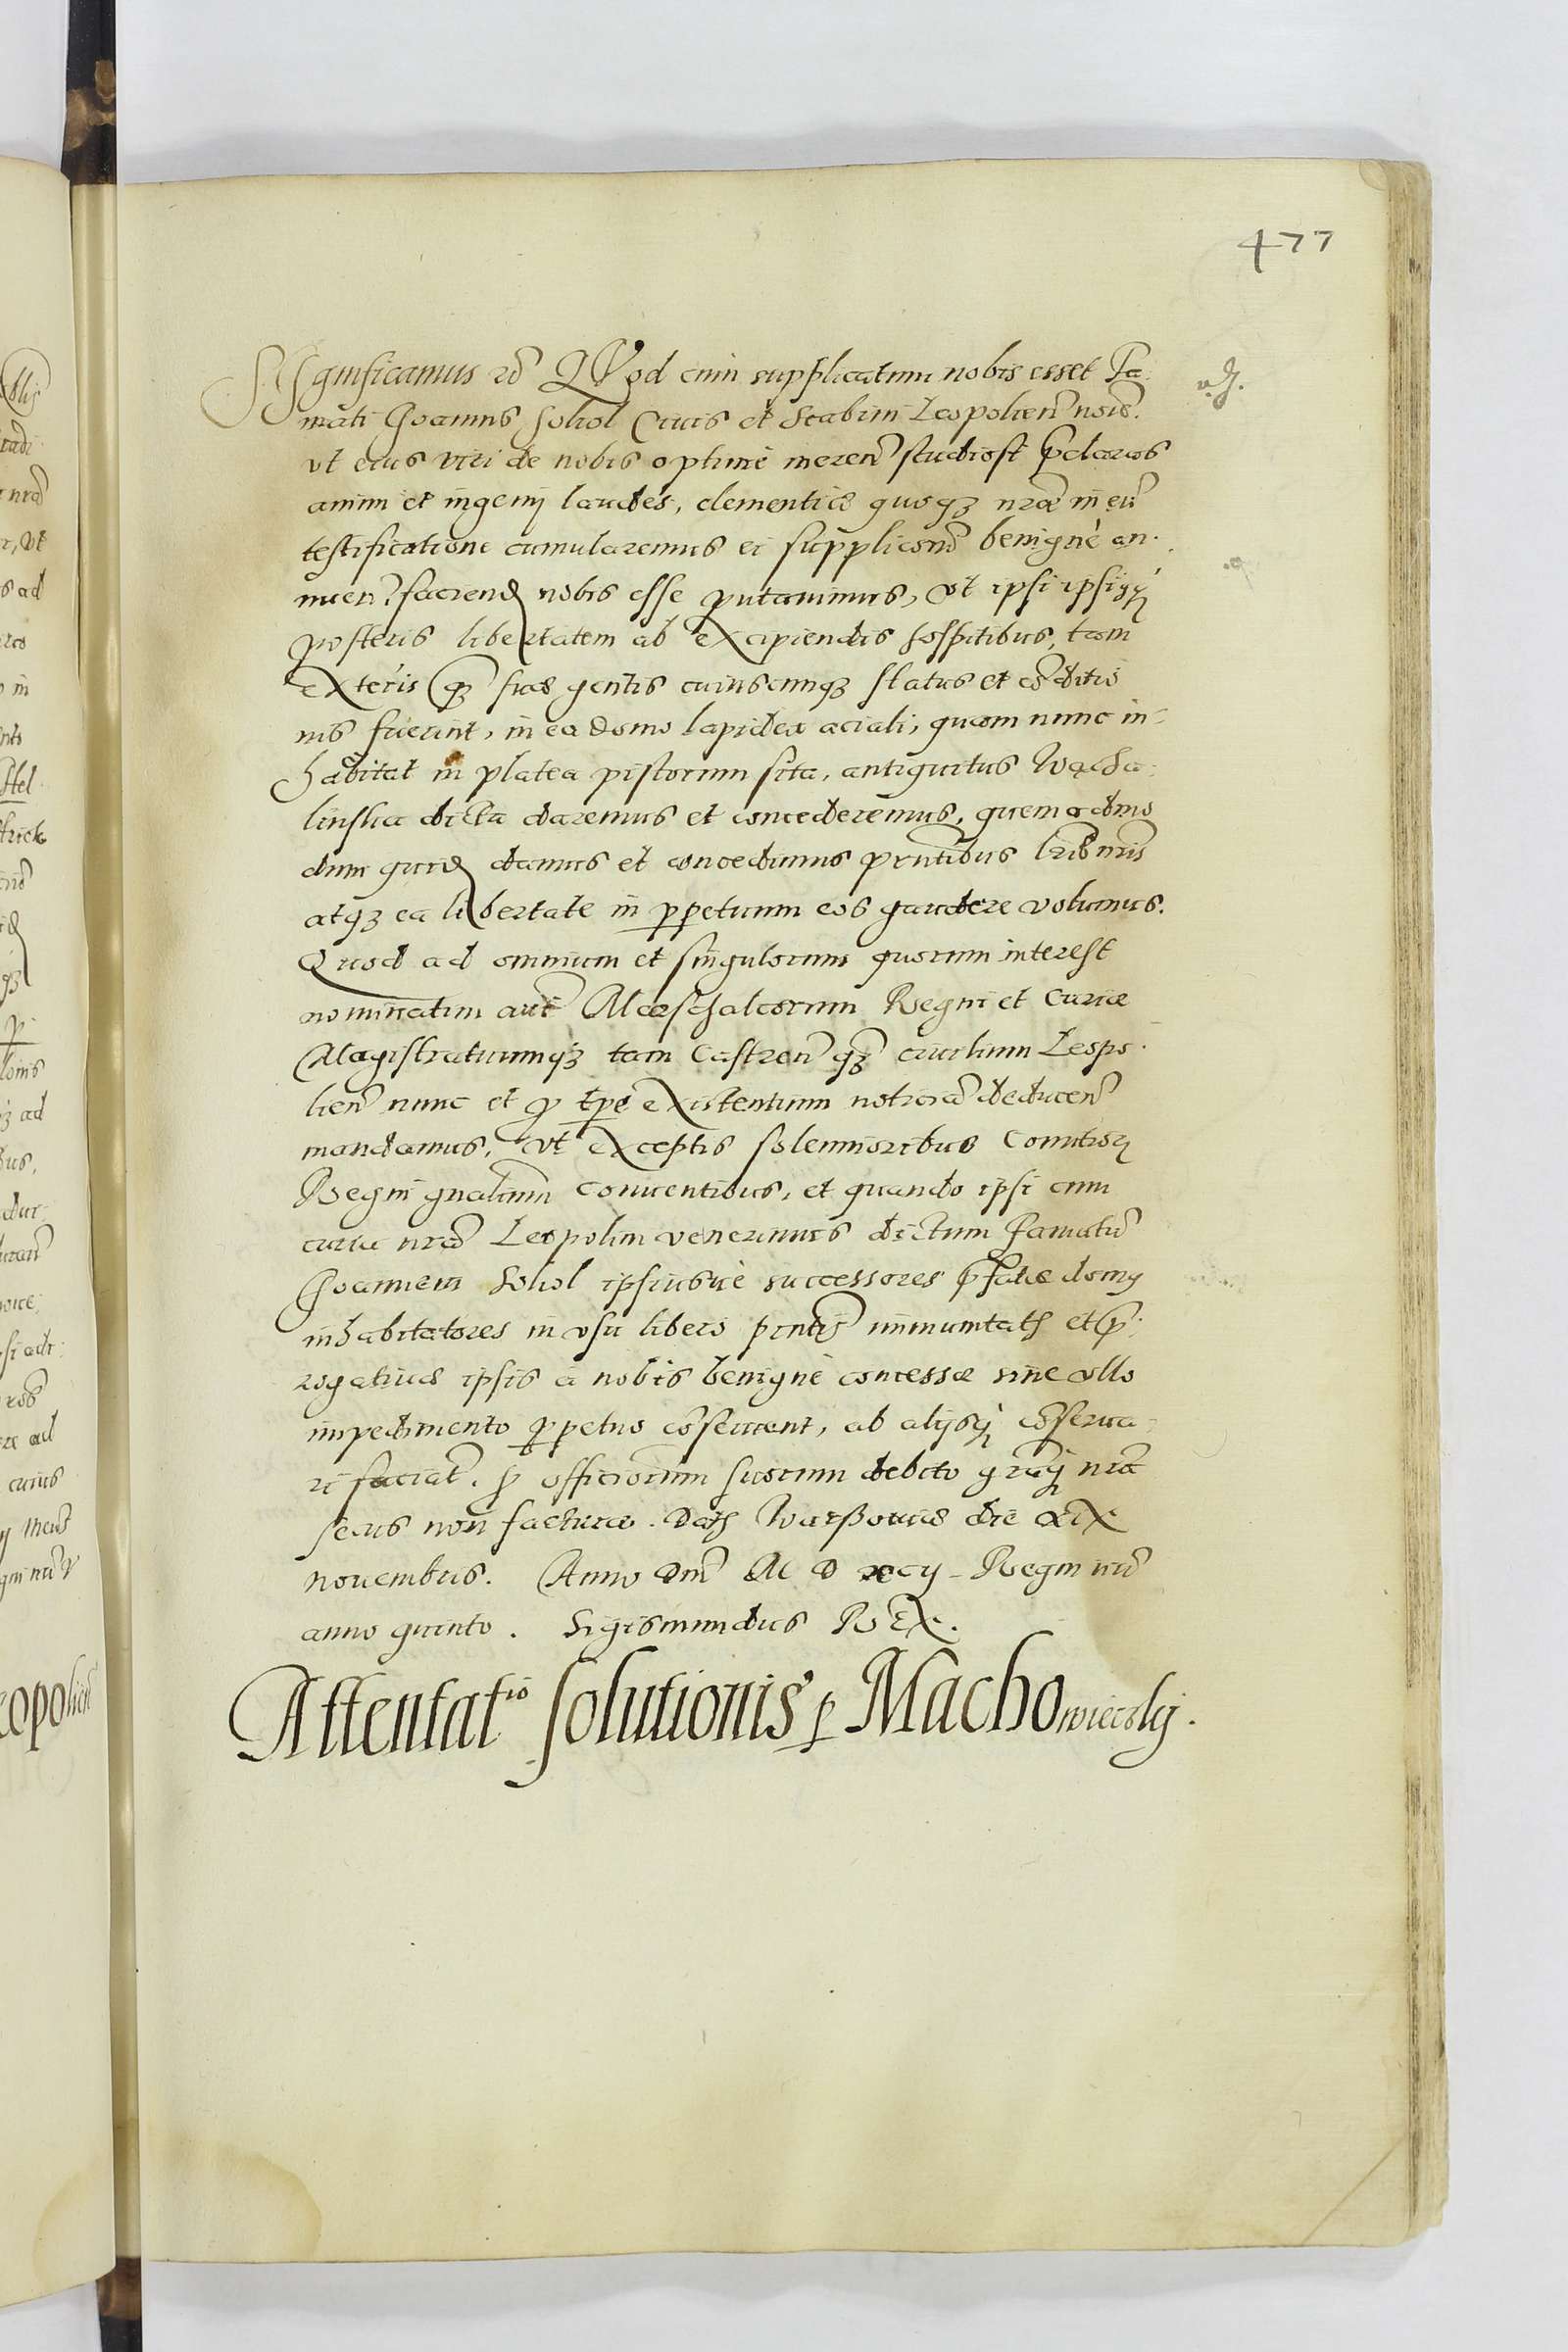 477
Significamus etc̃ QVod cum supplicatum nobis esset Fa-
mati Joannis Sohol Ciuis et Scabini Leopolien̄ noiē.
vt eius viri de nobis optime meren̄ studiosi p̄claras
animi et ingenij laudes, clementiæ quoqȝ nræ in eū
testificatione cumularemus ei supplicanō benignè an-
nuen. faciend nobis esse putauimus, vt ipsi ipsiqȝ
posteris libertatem ab excipiendis hospitibus, tam
exteris qȝ suæ gentis cuiuscunqȝ status et cōditio
nis fuerint, in ea domo lapidea aciali, quam nunc in-
habitat in platea pistorum sita, antiquitus Wącha-
linska dicta daremus et concederemus, quemadmo
dum quid damus et concedimus pn̄tibus lr̄is nr̄is
atqȝ ea libertate in perpetuum eos gaudere volumus.
Quod ad omnium et singulorum quorum interest
nominatim aut̄ Marschalcorum Regni et Curiæ
Magistratuumqȝ tam Castren̄ qȝ ciuilium Leopo-
lien̄ nunc et p tpe existentium noticiā deducen̄
mandamus, vt exceptis solennioribus Comitior
Regni gn̄alium conuentibus, et quando ipsi cum
curia nrā Leopolim venerimus dictum Famatū
Joannem Sohol ipsiusue successores p̄fatæ domꝰ
inhabitatores in vsu libero pn̄tis immunitatis et p̄-
rogatiuæ ipsis à nobis benignè concessæ sine vllo
impedimento perpetuo cōseruent, ab alijsqȝ cōserua-
ri faciāt. p officiorum suorum debito grāqȝ nrā
secus non facturæ. Dat Warßouiæ die XIX
nouembris. Anno Dnī M D XCIJ Regni nrī
anno quinto. Sigismundus REX.
Attentatio solutionis p Machowiecskj.